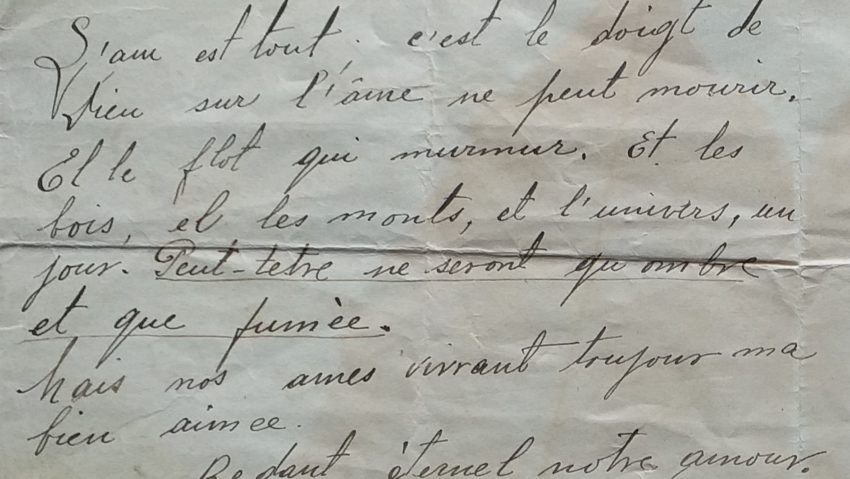 L'am est tout, c'est le doigt de
Dieu sur l'âme ne peut mourir.
Et le flot qui murmur. Et les
bois, et les monts, et l'univers, un
jour. Peut-tetre ne seront qu'ombre
et que fumèe.
Mais nos ames vivrant toujour ma
bien aimee.
èternel notre amour.